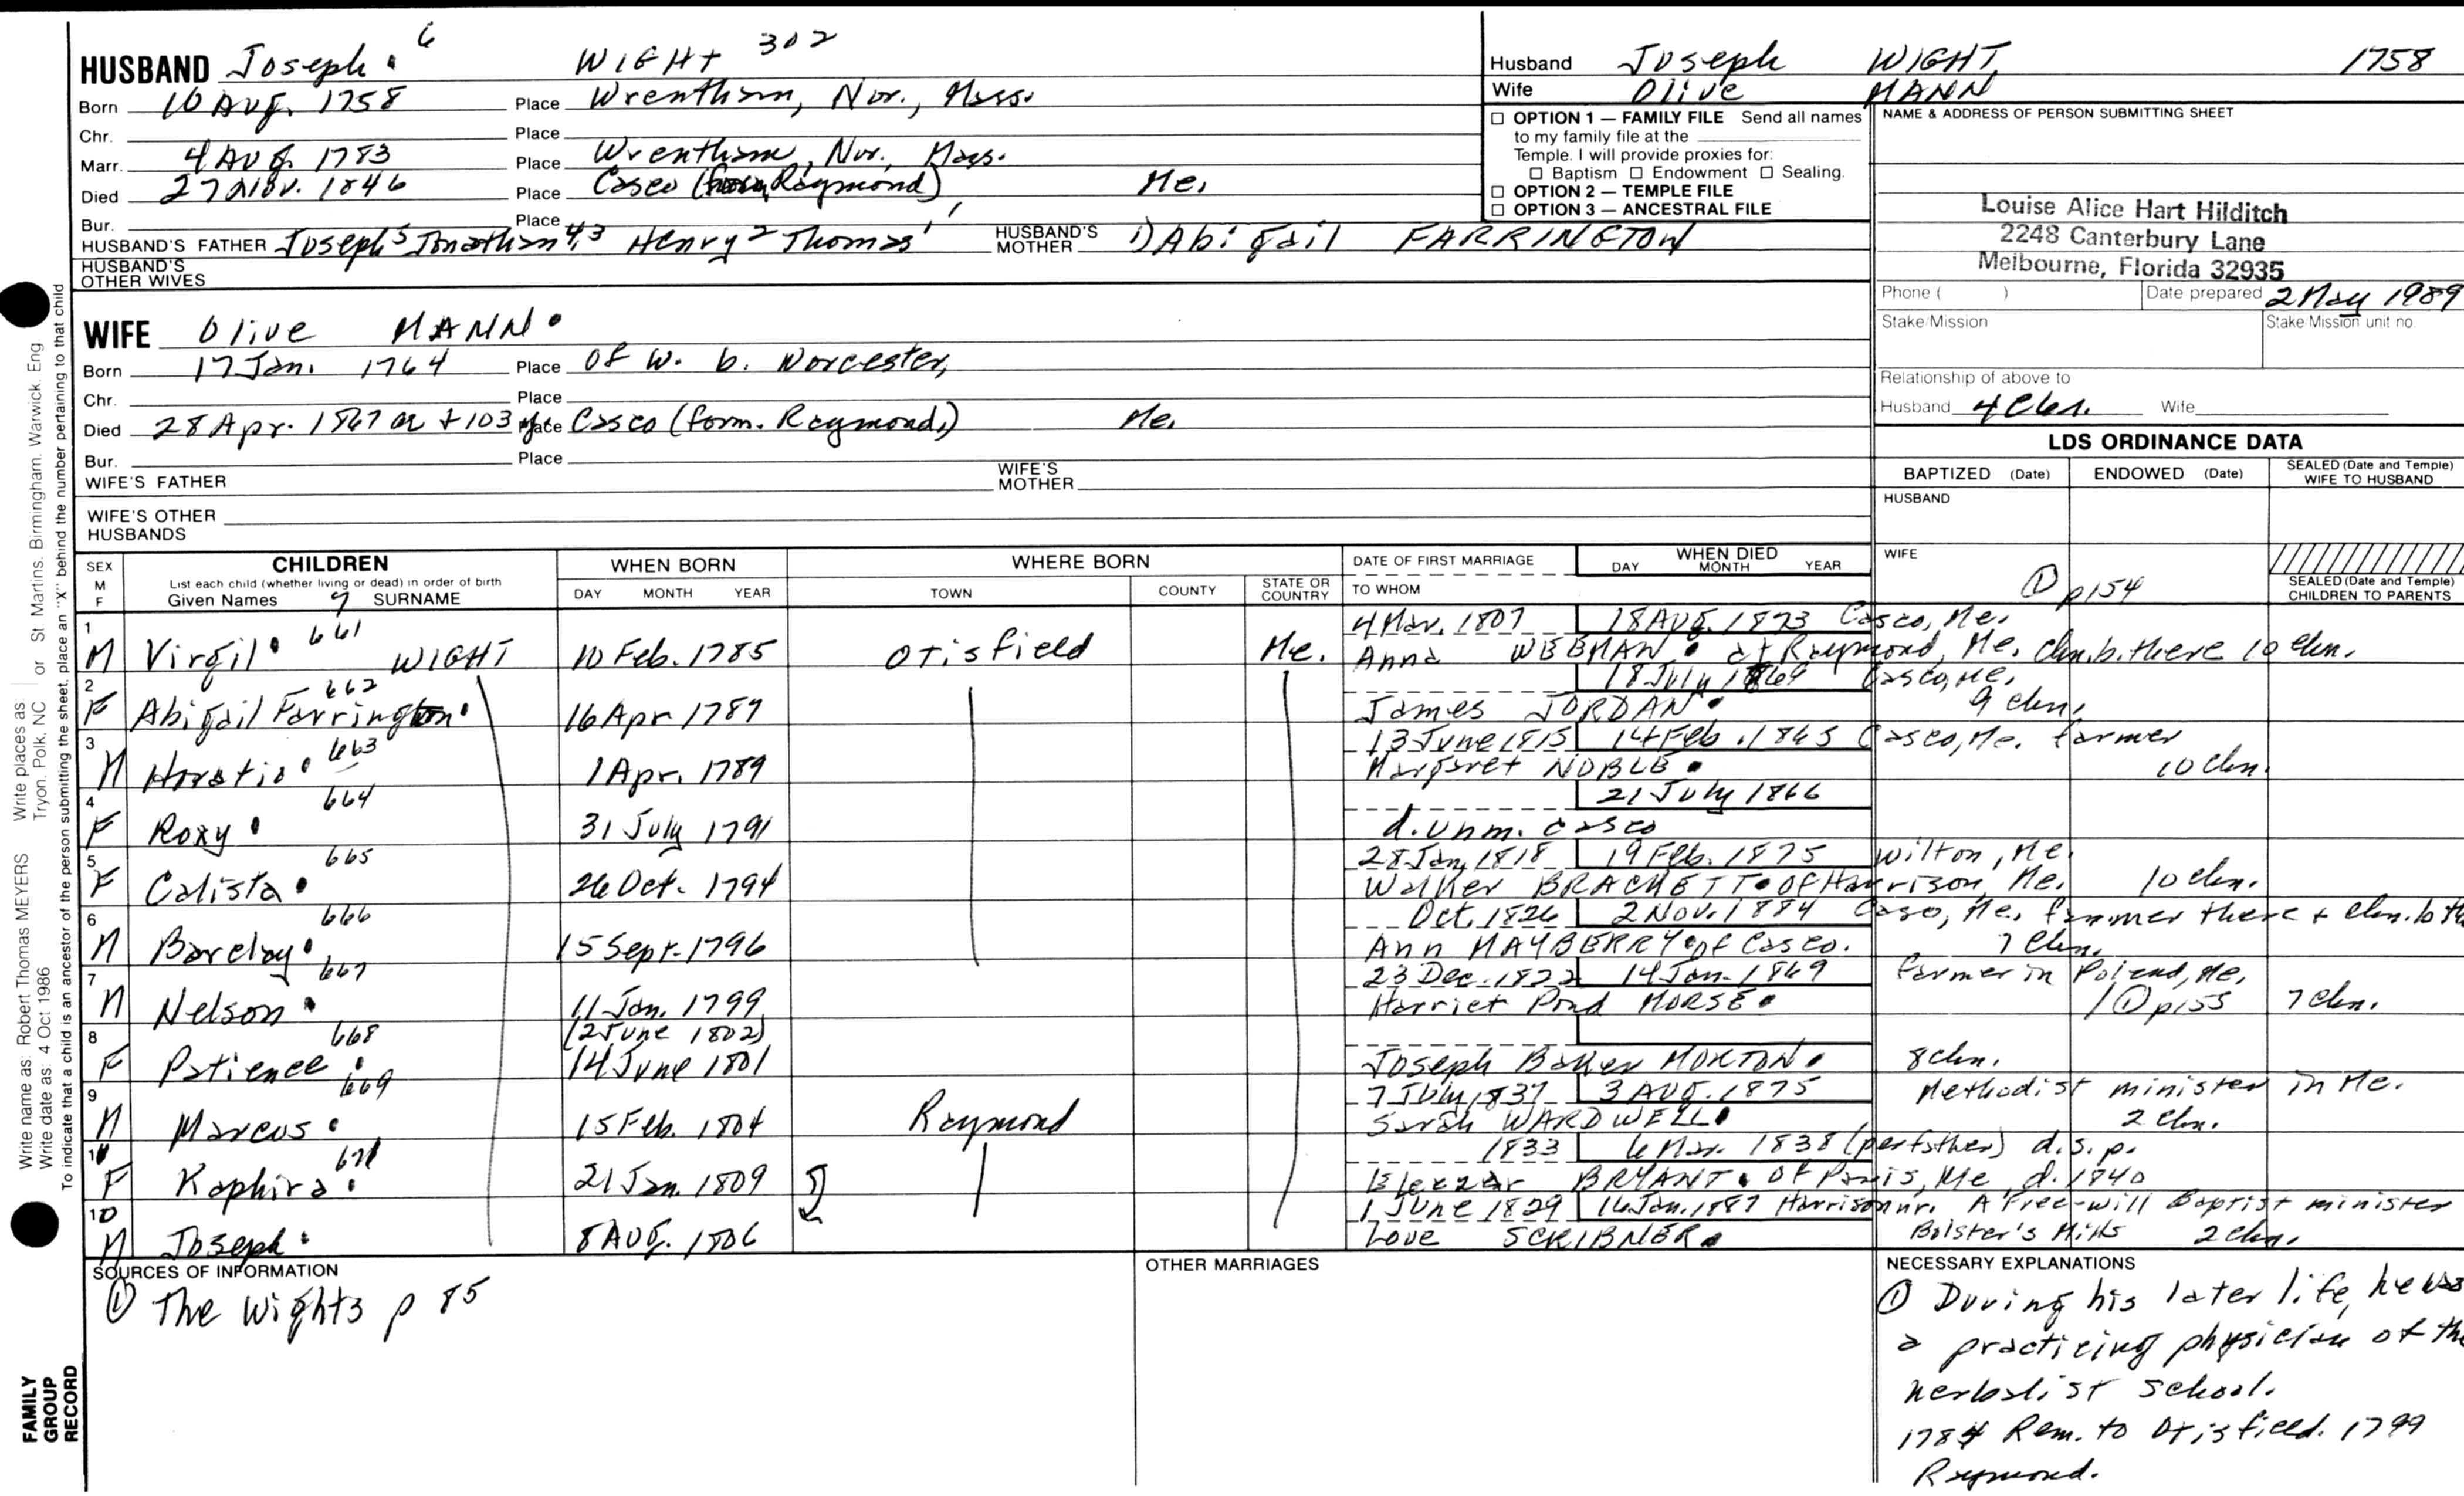 HUSBAND Joseph 6 WIGHT 302
Born 10 Aug. 1758 Place Wrentham, Nor., Mass.
Chr. Place
Marr. 4 Aug. 1783 Place Wrentham, Nor. Mass.
Died 27 Nov. 1846 Place Casco (Raymond) Me.
Bur. Place
HUSBAND'S FATHER Joseph 5 Jonathan 4,3 Henry 2 Thomas 1 HUSBAND'S MOTHER 1) Abigail FARRINGTON
HUSBAND'S OTHER WIVES
WIFE Olive MANN
Born 17 Jan. 1764 Place Of W. b. Norcester,
Chr. Place
Died 28 Apr. 1867 Place Casco (form. Raymond,) Me.
Bur. Place
WIFE'S FATHER WIFE'S MOTHER
WIFE'S OTHER HUSBANDS
Husband Joseph WIGHT 1758
Wife Olive MANN
□ OPTION 1 — FAMILY FILE Send all names
to my family file at the
Temple. I will provide proxies for:
□ Baptism □ Endowment □ Sealing.
□ OPTION 2 — TEMPLE FILE
□ OPTION 3 — ANCESTRAL FILE
NAME & ADDRESS OF PERSON SUBMITTING SHEET
Louise Alice Hart Hilditch
2248 Canterbury Lane
Melbourne, Florida 32935
Phone ( ) Date prepared 2 May 1989
Stake/Mission Stake/Mission unit no.
Relationship of above to
Husband 4 Wife
LDS ORDINANCE DATA
BAPTIZED (Date) ENDOWED (Date) SEALED (Date and Temple) WIFE TO HUSBAND
HUSBAND
WIFE
① p154
SEALED (Date and Temple) CHILDREN TO PARENTS
SEX M F CHILDREN List each child (whether living or dead) in order of birth Given Names 7 SURNAME
WHEN BORN DAY MONTH YEAR
WHERE BORN TOWN COUNTY STATE OR COUNTRY
DATE OF FIRST MARRIAGE TO WHOM
WHEN DIED DAY MONTH YEAR
4 Mar. 1807 18 Aug. 1873 Casco, Me.
1 M Virgil 661 WIGHT 10 Feb. 1785 Otisfield Me. Anna at Raymond, Me. chn. b. there 10 chn.
18 July 1869 Casco, Me.
2 F Abigail Farrington 662 16 Apr 1787 James JORDAN 9 chn.
13 June 1815 14 Feb. 1865 Casco, Me. farmer
3 M Horatio 663 1 Apr. 1789 Margaret NOBLE 10 chn.
21 July 1866
4 F Roxy 664 31 July 1791 d. unm. Casco
28 Jan. 1818 19 Feb. 1875 Wilton, Me.
5 F Calista 665 26 Oct. 1794 Walker BRACKETT of Harrison, Me. 10 chn.
Oct. 1826 2 Nov. 1884 Caso, Me. farmer there + chn. b. th
6 M Barclay 666 15 Sept. 1796 Ann MAYBERRY of Casco. 7 chn.
23 Dec. 1822 14 Jan. 1869 farmer in Poland, Me.
7 M Nelson 667 11 Jan. 1799 Harriet Pond MORSE 1 ① p155 7 chn.
(2 June 1802)
8 F Patience 668 14 June 1801 Joseph Baker MORTON 8 chn.
7 July 1837 3 Aug. 1875 Methodist minister in Me.
9 M Marcus 669 15 Feb. 1804 Raymond Sarah WARDWELL 2 chn.
1833 6 Mar. 1838 (per father) d.s.p.
F Kaphira 671 21 Jan. 1809 Elezzar BRYANT of Paris, Me d. 1840
1 June 1829 16 Jan. 1887 Harrison nr. A Free-will Baptist minister
10 M Joseph 8 Aug. 1806 Love SCRIBNER Bolster's Mills 2 chn.
SOURCES OF INFORMATION
① The Wights p 85
OTHER MARRIAGES
NECESSARY EXPLANATIONS
① During his later life, he was
a practicing physician of the
herbalist school.
1784 Rem. to Otisfield. 1799
Raymond.
Write name as: Robert Thomas MEYERS Write places as: St Martins. Birmingham. Warwick. Eng
Write date as: 4 Oct 1986 Tryon. Polk. NC or
To indicate that a child is an ancestor of the person submitting the sheet, place an "X" behind the number pertaining to that child
FAMILY
GROUP
RECORD